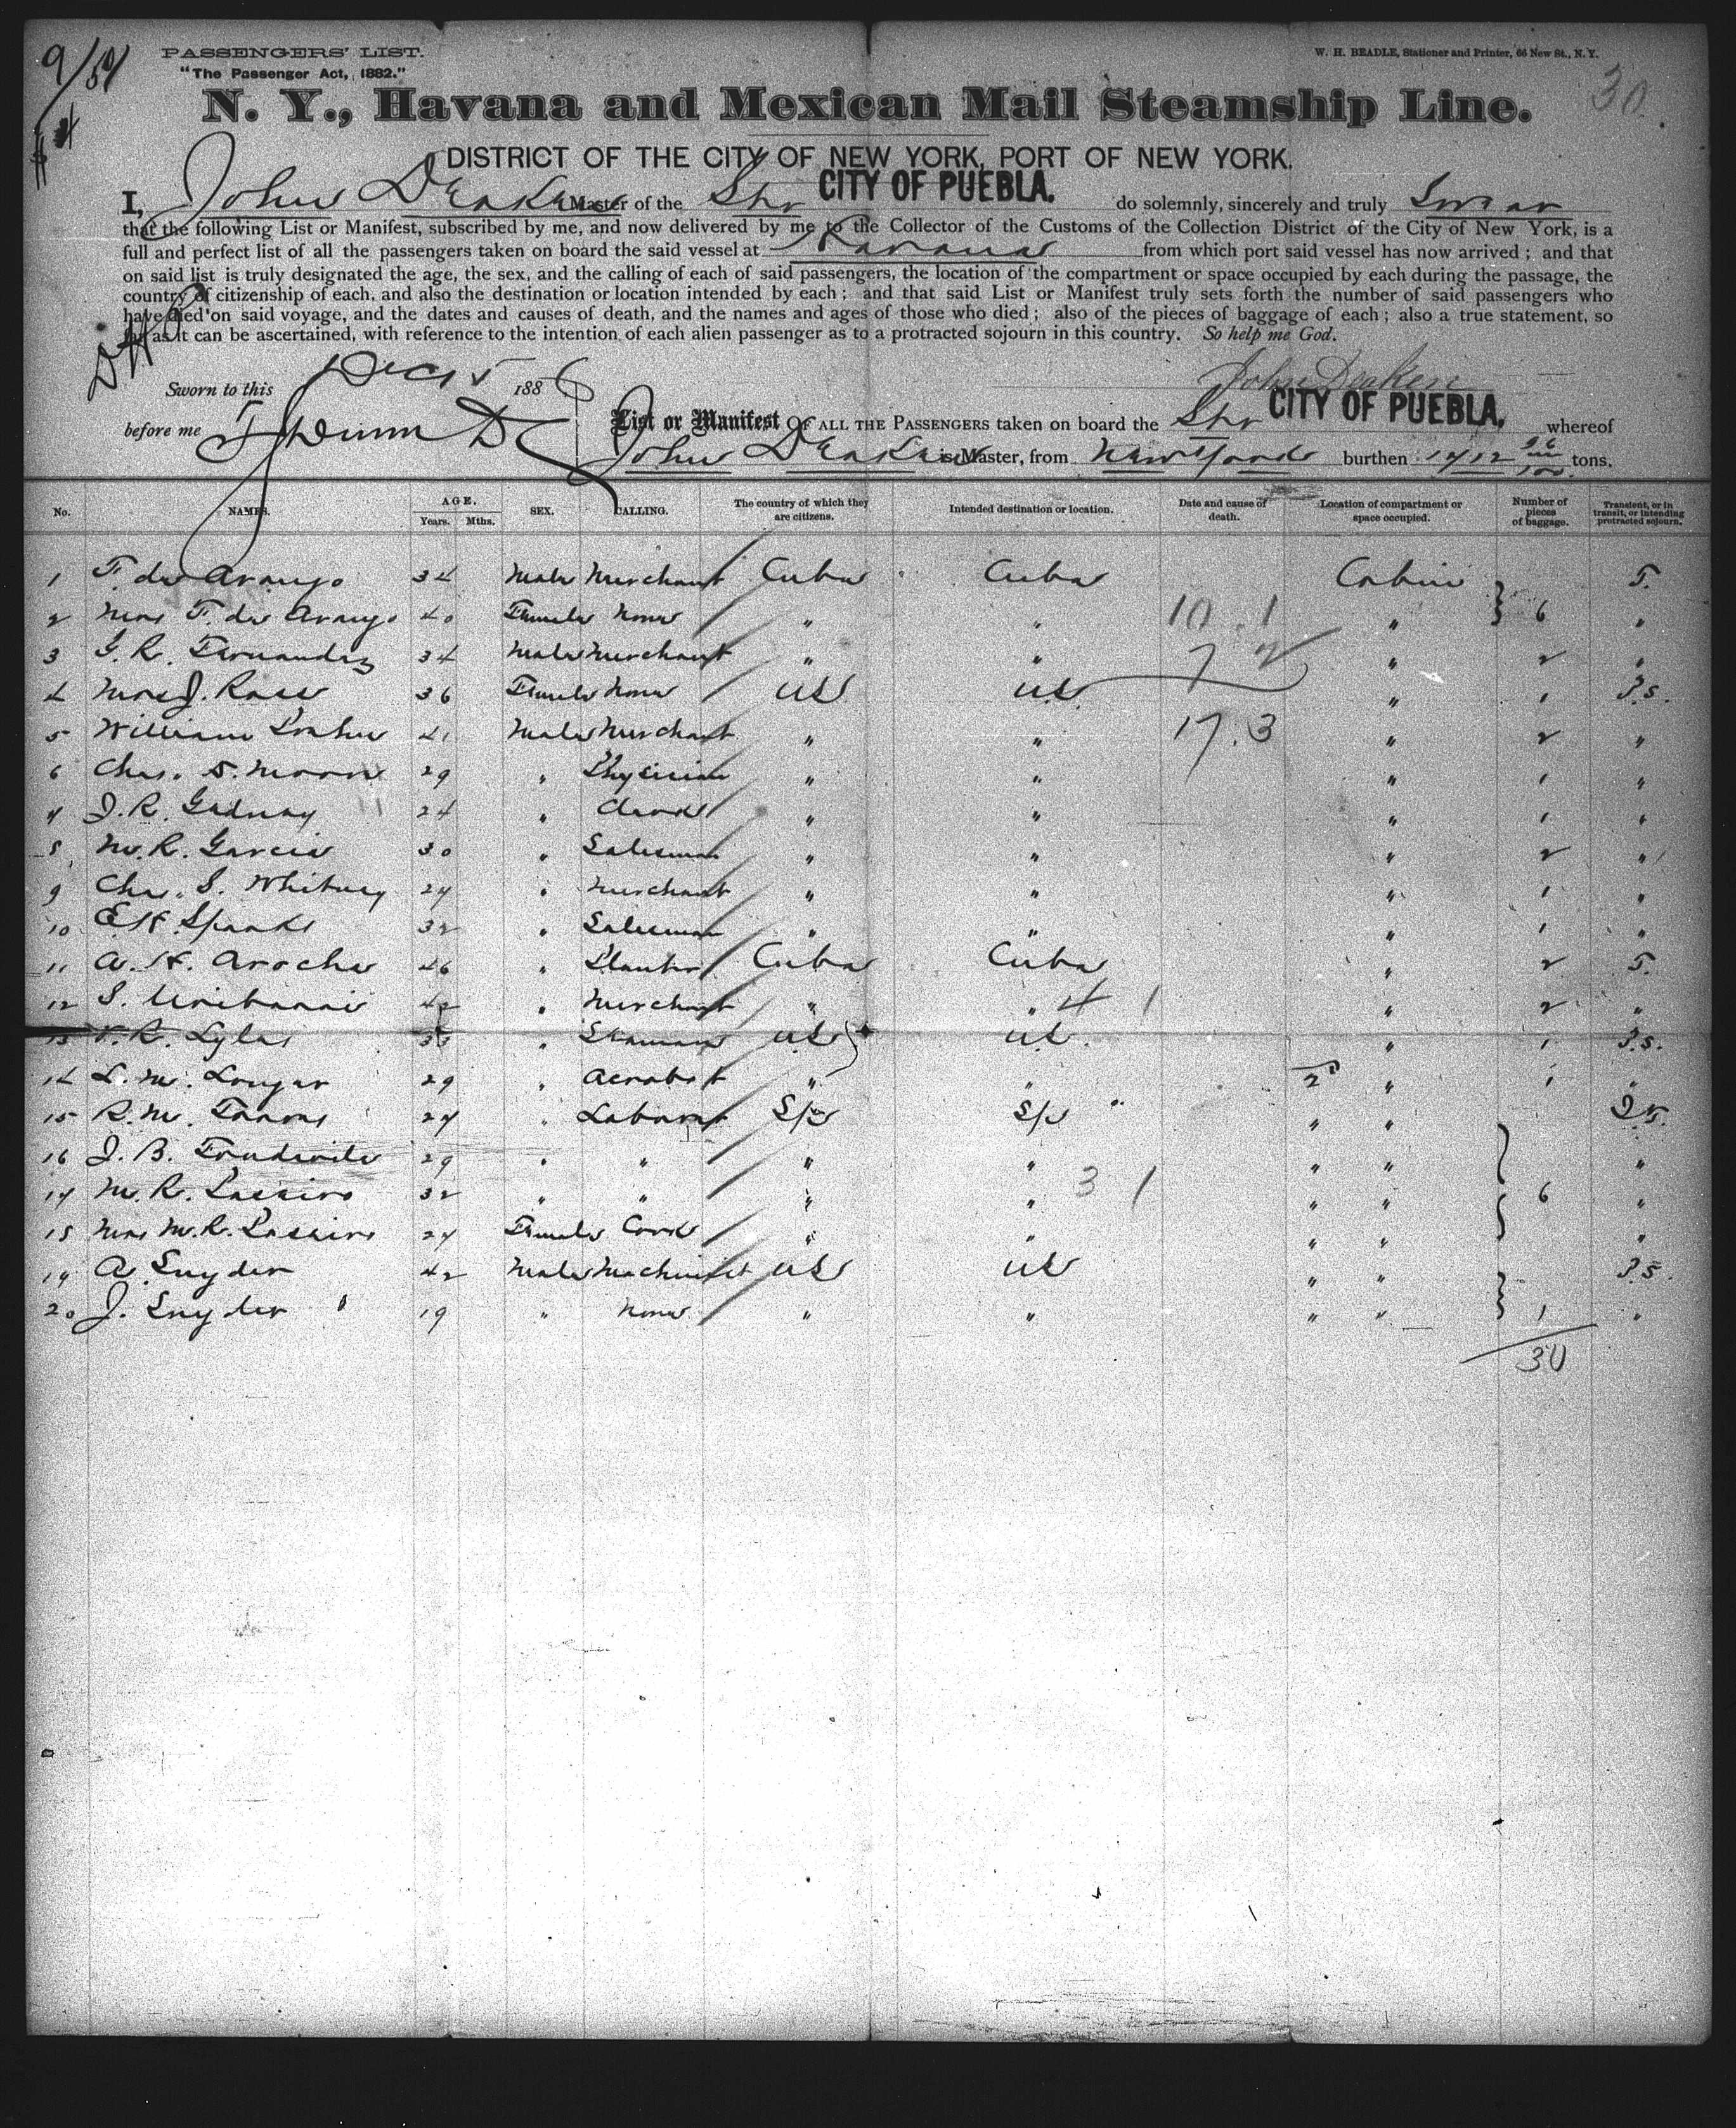 9/
PASSENGERS' LIST.
W. H. BEADLE, Stationer and Printer, 66 New St., N. Y.
"The Passenger Act, 1882."
30
N. Y., Havana and Mexican Mail Steamship Line.
DISTRICT OF THE CITY OF NEW YORK, PORT OF NEW YORK.
I, John Deaken Master of the Str CITY OF PUEBLA. do solemnly, sincerely and truly Swear
that the following List or Manifest, subscribed by me, and now delivered by me to the Collector of the Customs of the Collection District of the City of New York, is a
full and perfect list of all the passengers taken on board the said vessel at Havana from which port said vessel has now arrived ; and that
on said list is truly designated the age, the sex, and the calling of each of said passengers, the location of the compartment or space occupied by each during the passage, the
country of citizenship of each, and also the destination or location intended by each ; and that said List or Manifest truly sets forth the number of said passengers who
have died on said voyage, and the dates and causes of death, and the names and ages of those who died ; also of the pieces of baggage of each ; also a true statement, so
far as it can be ascertained, with reference to the intention of each alien passenger as to a protracted sojourn in this country. So help me God.
Sworn to this Dec 5 1886
John Deaken
before me
List or Manifest OF ALL THE PASSENGERS taken on board the Str CITY OF PUEBLA, whereof
John Deaken is Master, from New York burthen tons.
No. NAMES. AGE. Years. Mths. SEX. CALLING. The country of which they are citizens. Intended destination or location. Date and cause of death. Location of compartment or space occupied. Number of pieces of baggage. Transient, or in transit, or intending protracted sojourn.
1 F. de Arango 34 Male Merchant Cuba Cuba Cabin T.
2 Mrs F. de Arango 40 Female None " " 10 1 " 6 "
3 G. R. Fernandez 34 Male Merchant " " 7 2 " 2 "
4 Mrs J. Ross 36 Female None US US " 1 P.S.
5 William 41 Male Merchant " " 17.3 " 2 "
6 Chas. S. Moore 29 " Physician " " " 1 "
7 J. R. 24 " Clerk " " " 1 "
8 M. R. Garcia 30 " Salesman " " " 2 "
9 Chas. S. Whitney 27 " Merchant " " " 1 "
10 E H Sparks 32 " Salesman " " " 1 "
11 A. H. Arocha 46 " Planter Cuba Cuba " 2 T.
12 S. 42 " Merchant " " 4 1 " 2 "
13 Lyles " Seaman US US " 1 P.S.
14 L. M. 29 " Acrobat " " 2d " 1 "
15 R. M. 27 " Laborer Sp Sp " "
16 J. B. 29 " " " " " " "
17 M. R. 32 " " " " 3 1 " " 6 "
18 Mrs M. R. 27 Female Cook " " " " "
19 A Snyder 42 Male Machinist US US " " P.S.
20 J. Snyder 19 " None " " " " 1 "
30